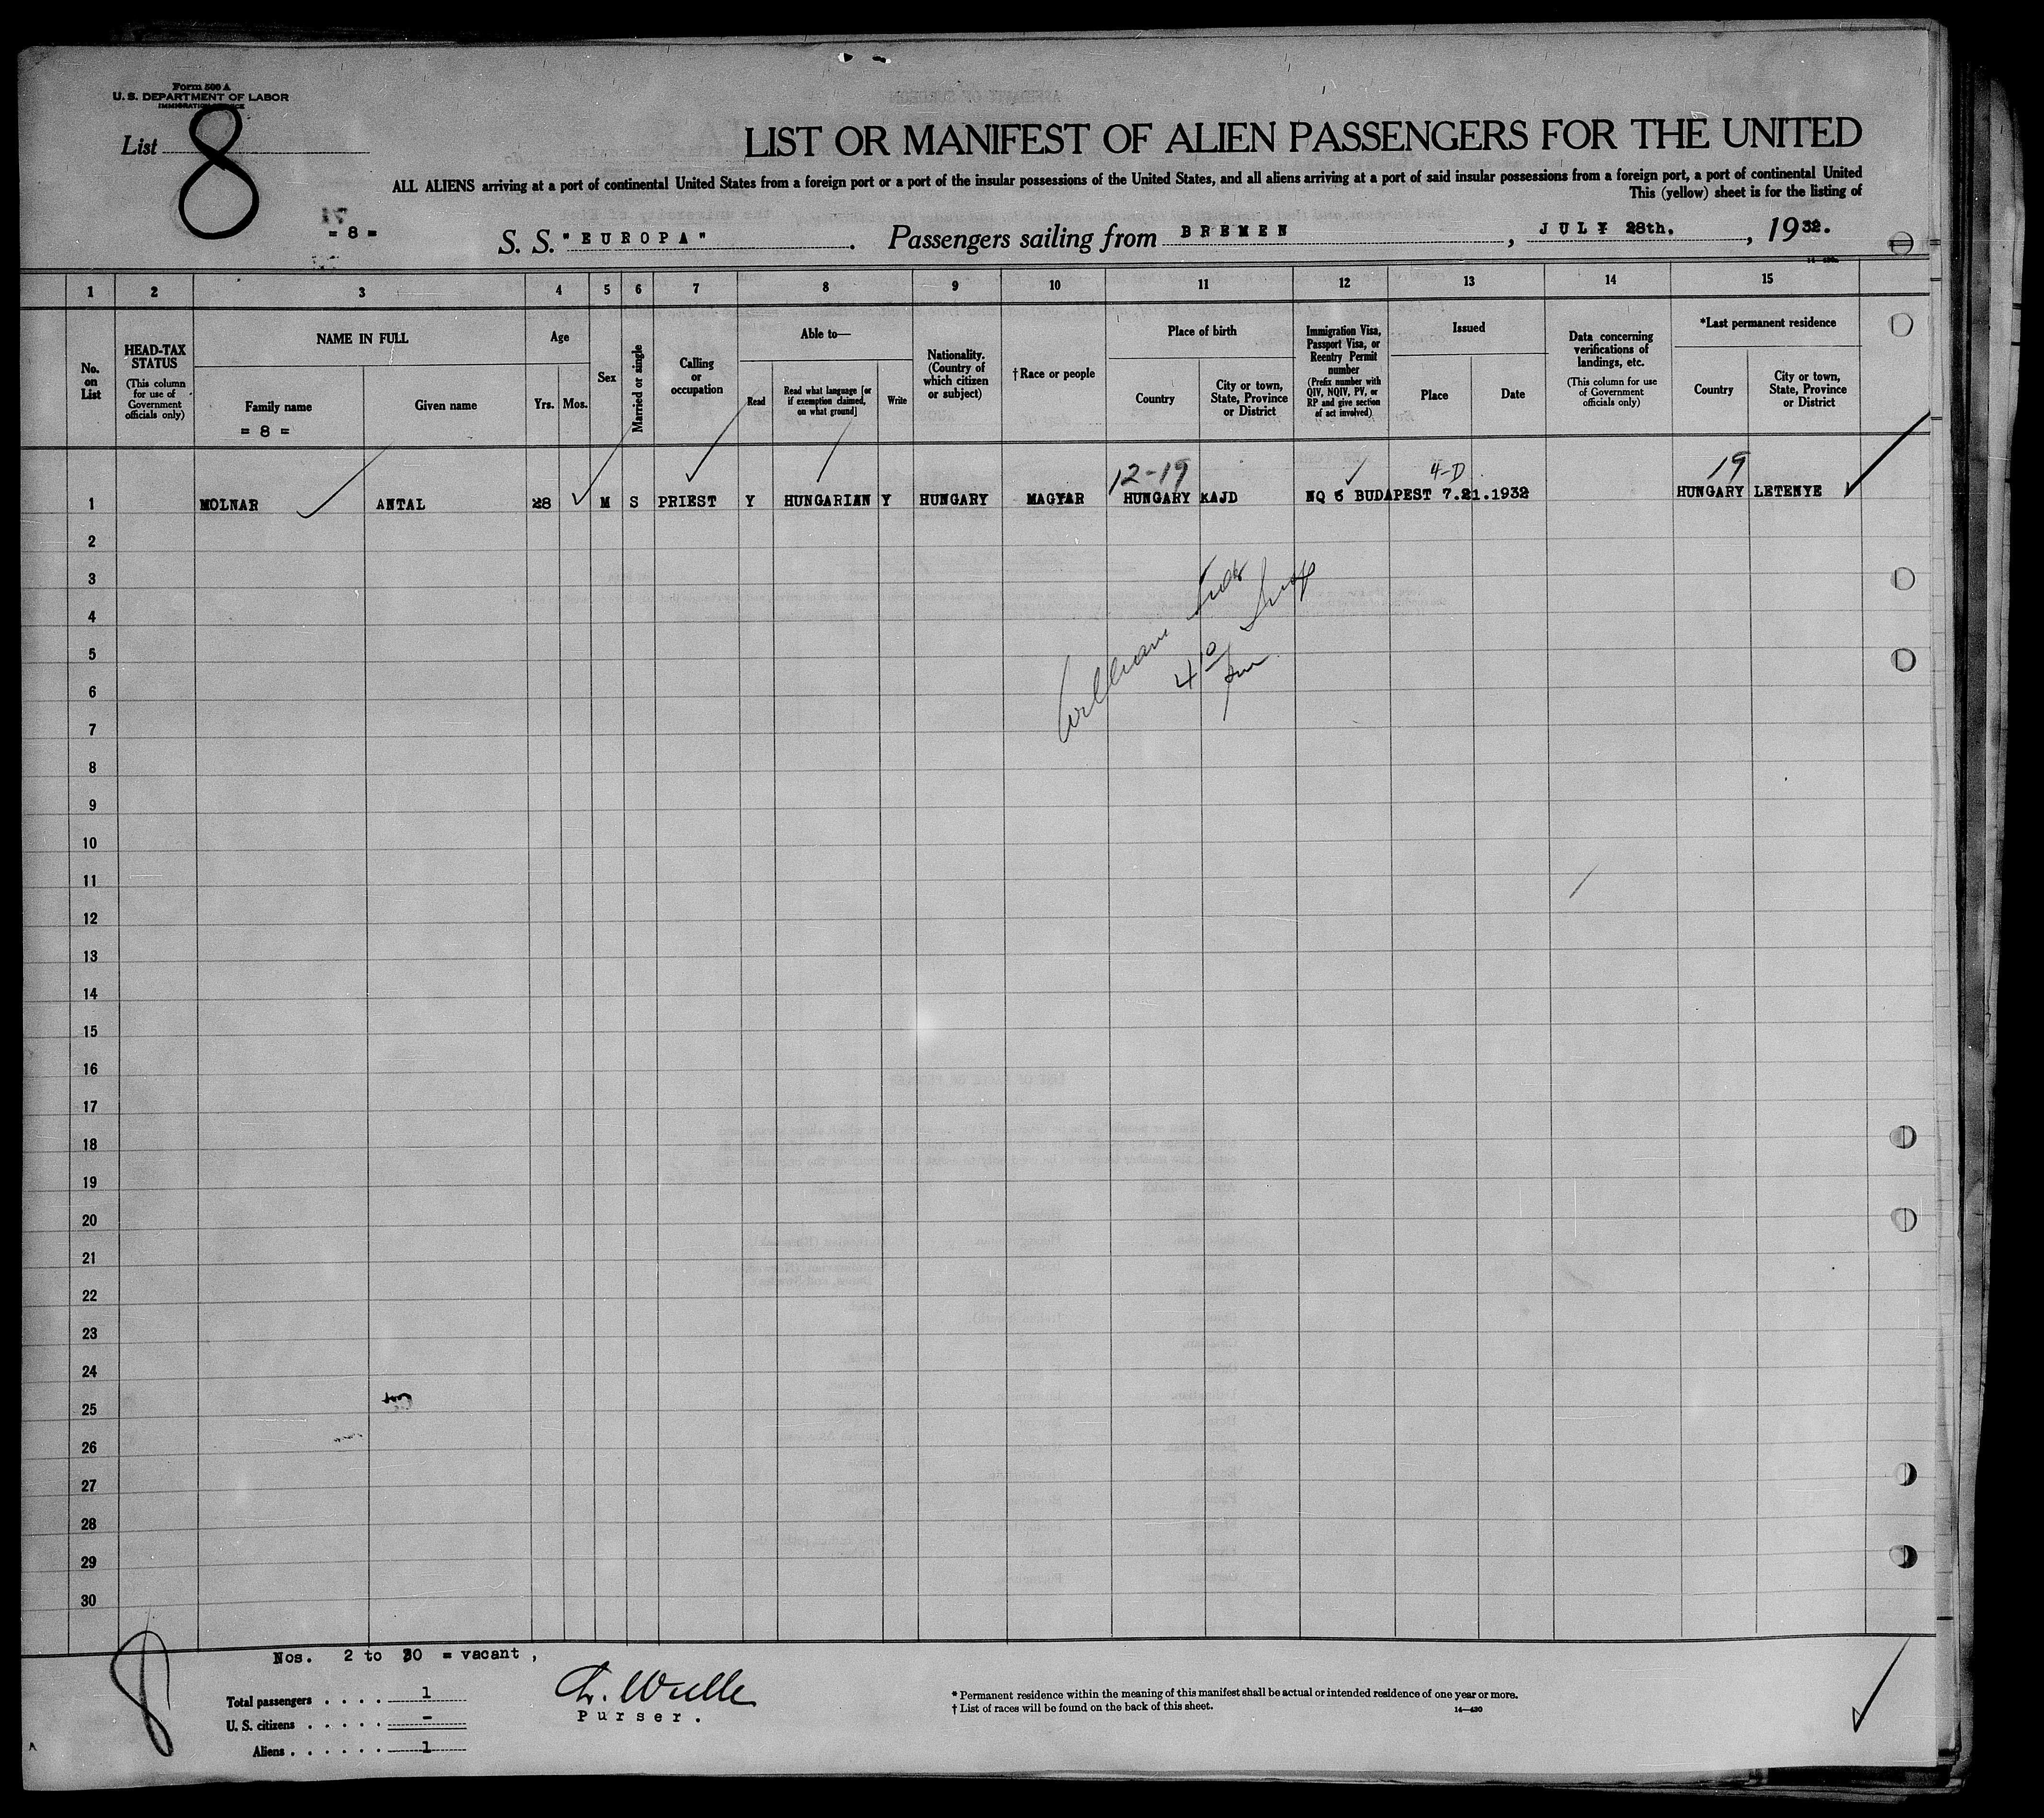 Form 500 A
U. S. DEPARTMENT OF LABOR
IMMIGRATION SERVICE
List 8
LIST OR MANIFEST OF ALIEN PASSENGERS FOR THE UNITED
ALL ALIENS arriving at a port of continental United States from a foreign port or a port of the insular possessions of the United States, and all aliens arriving at a port of said insular possessions from a foreign port, a port of continental United
This (yellow) sheet is for the listing of
= 8 =
S. S. "EUROPA". Passengers sailing from BREMEN, JULY 28th., 1932.
1 2 3 4 5 6 7 8 9 10 11 12 13 14 15
No. on List
HEAD-TAX STATUS
(This column for use of Government officials only)
NAME IN FULL
Family name
= 8 =
Given name
Age
Yrs. Mos.
Sex
Married or single
Calling or occupation
Able to—
Read
Read what language [or if exemption claimed, on what ground]
Write
Nationality. (Country of which citizen or subject)
† Race or people
Place of birth
Country
City or town, State, Province or District
Immigration Visa, Passport Visa, or Reentry Permit number
(Prefix number with QIV, NQIV, PV, or RP and give section of act involved)
Issued
Place
Date
Data concerning verifications of landings, etc.
(This column for use of Government officials only)
*Last permanent residence
Country
City or town, State, Province or District
12-19 4-D 19
1 MOLNAR ANTAL 28 M S PRIEST Y HUNGARIAN Y HUNGARY MAGYAR HUNGARY KAJD NQ 6 BUDAPEST 7.21.1932 HUNGARY LETENYE
2
3
William
4
5
4 10
6
7
8
9
10
11
12
13
14
15
16
17
18
19
20
21
22
23
24
25
26
27
28
29
30
8
Nos. 2 to 30 = vacant,
Total passengers . . . . 1
U. S. citizens . . . . . –
Aliens . . . . . . 1
Purser.
* Permanent residence within the meaning of this manifest shall be actual or intended residence of one year or more.
† List of races will be found on the back of this sheet.
14—430